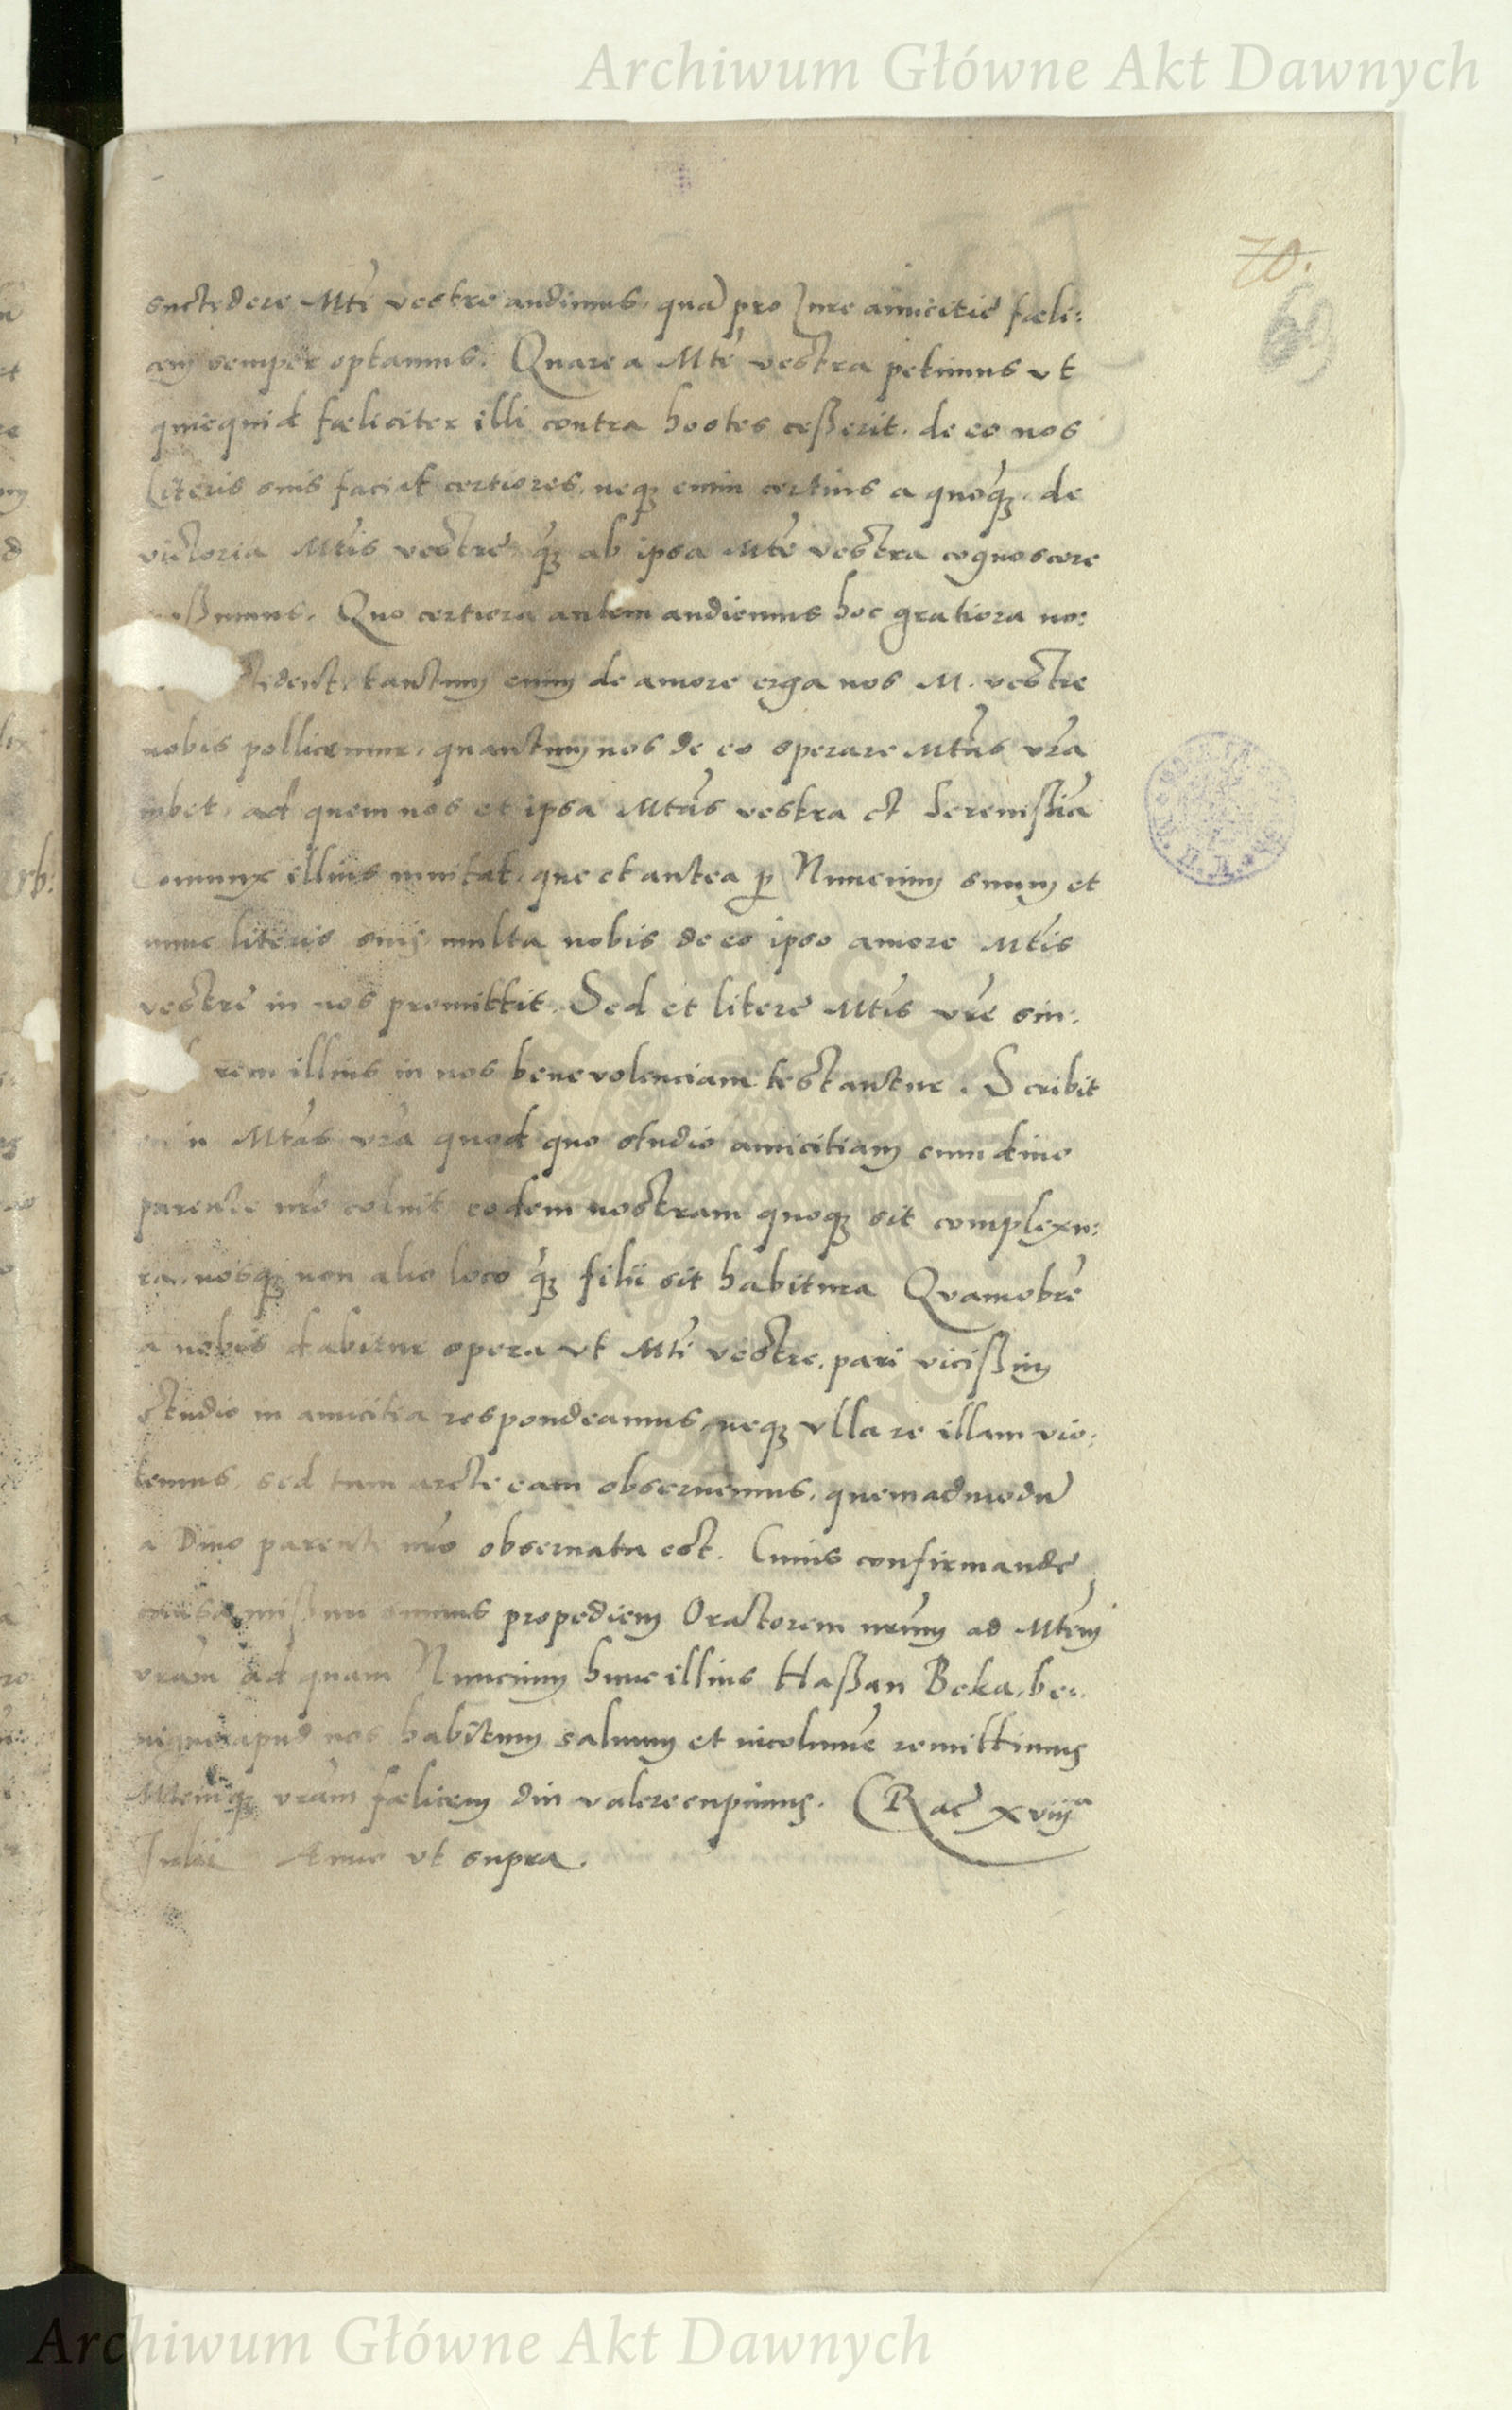 Archiwum Główne Akt Dawnych
70.
69
succedere Mti vestre audimus, quã pro Jure amicitie fæli:
cem semper optamus. Quare a Mte vestra petimus vt
quicquid fæliciter illi contra hostes ceßerit. de eo nos
Literis suis faciat certiores, neqȝ enim certius a quoqȝ de
victoria Mtis vestre qȝ ab ipsa Mte vestra cognoscere
ßumus. Quo certiora autem audiemus hoc gratiora no:
cident, tantum enim de amore erga nos M. vestre
nobis pollicemur, quantum nos de eo sperare Mtas vra
iubet, ad quem nos et ipsa Mtas vestra et Serenißia
Coniunx illius inuitat, que et antea p Nuncium suum et
nunc literis suis multa nobis de eo ipso amore Mtis
vestre in nos promittit. Sed et litere Mtis vre sin:
rem illius in nos beneuolenciam testantur. Scribit
Mtas vra quod quo studio amicitiam cum diuo
parente nro coluit eodem nostram quoqȝ sit complexu:
ra, nosqȝ non alio loco qȝ filii sit habitura Quamobrē
a nobis dabitur opera vt Mti vestre, pari vicißim
studio in amicitia respondeamus, neqȝ vlla re illam vio:
lemus, sed tam arcte eam obseruemus, quemadmodū
a Diuo parente nro obseruata est. Cuius confirmande
causa mißuri sumus propediem Oratorem nrum ad Mtem
vram ad quam Nuncium hunc illius Haßan Beka, be:
nigne apud nos habitum saluum et incolumē remittimus
Mtemqȝ vram fælicem diu valere cupimus. Crac xviija
Julii Anno vt supra.
Archiwum Główne Akt Dawnych